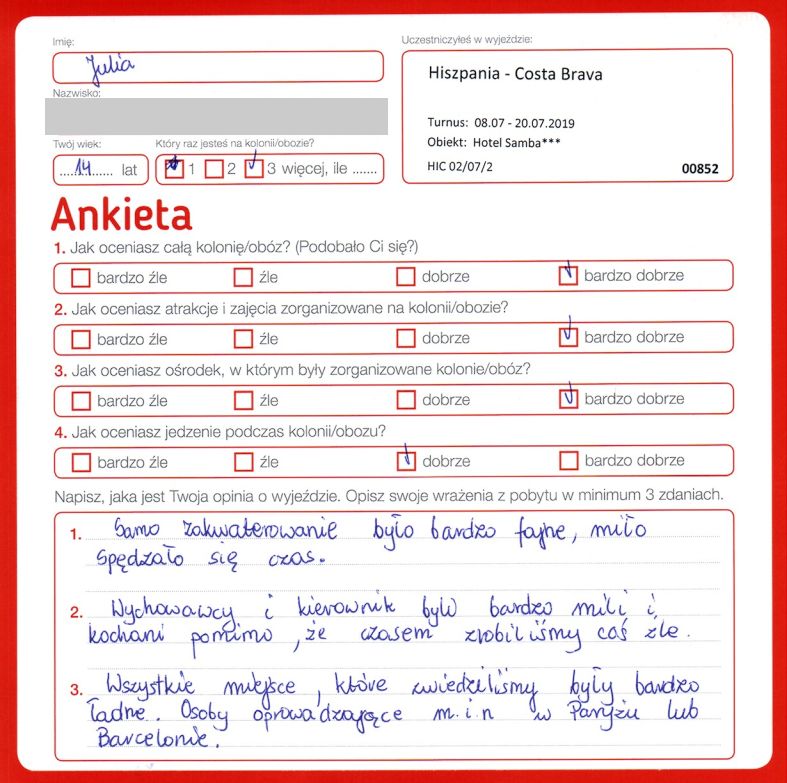 Imię:
Julia
Nazwisko:
Uczestniczyłeś w wyjeździe:
Hiszpania - Costa Brava
Turnus: 08.07 - 20.07.2019
Obiekt: Hotel Samba***
HIC 02/07/2 00852
Twój wiek: Który raz jesteś na kolonii/obozie?
14 lat 1 2 3 więcej, ile .......
Ankieta
1. Jak oceniasz całą kolonię/obóz? (Podobało Ci się?)
bardzo źle źle dobrze bardzo dobrze
2. Jak oceniasz atrakcje i zajęcia zorganizowane na kolonii/obozie?
bardzo źle źle dobrze bardzo dobrze
3. Jak oceniasz ośrodek, w którym były zorganizowane kolonie/obóz?
bardzo źle źle dobrze bardzo dobrze
4. Jak oceniasz jedzenie podczas kolonii/obozu?
bardzo źle źle dobrze bardzo dobrze
Napisz, jaka jest Twoja opinia o wyjeździe. Opisz swoje wrażenia z pobytu w minimum 3 zdaniach.
1. Samo zakwaterowanie było bardzo fajne, miło
spędzało się czas.
2. Wychowawcy i kierownik byli bardzo mili i
kochani pomimo, że czasem zrobiliśmy coś źle.
3. Wszystkie miejsce, które zwiedziliśmy były bardzo
ładne. Osoby oprowadzające m.i.n w Paryżu lub
Barcelonie.